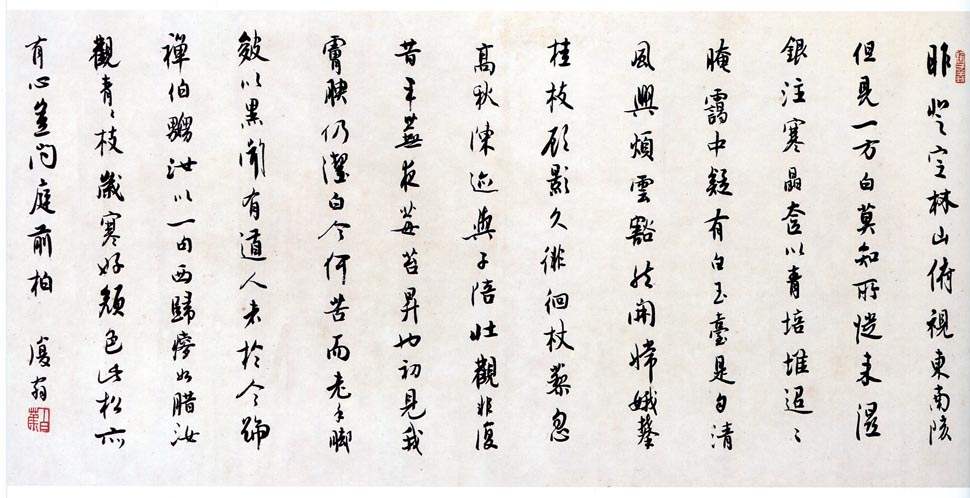 昨登定林山俯視東南陔
但見一方白莫知所從來溼
銀注寒晶奩以青培堆迢々
晻靄中疑有白玉臺是夕清
風興煩雲豁然開嫦娥攀
桂枝顧影久徘徊杖藜忽
高秋陳迹與子陪壯觀非復
昔平蕪夜莓苔昇也初見我
膚腴仍潔白今何苦而老手腳
皴以黑聞有道人來於今號
禪伯嬲汝以一句西歸瘦如腊汝
觀青々枝歲寒好顏色此松亦
有心豈問庭前柏 復翁